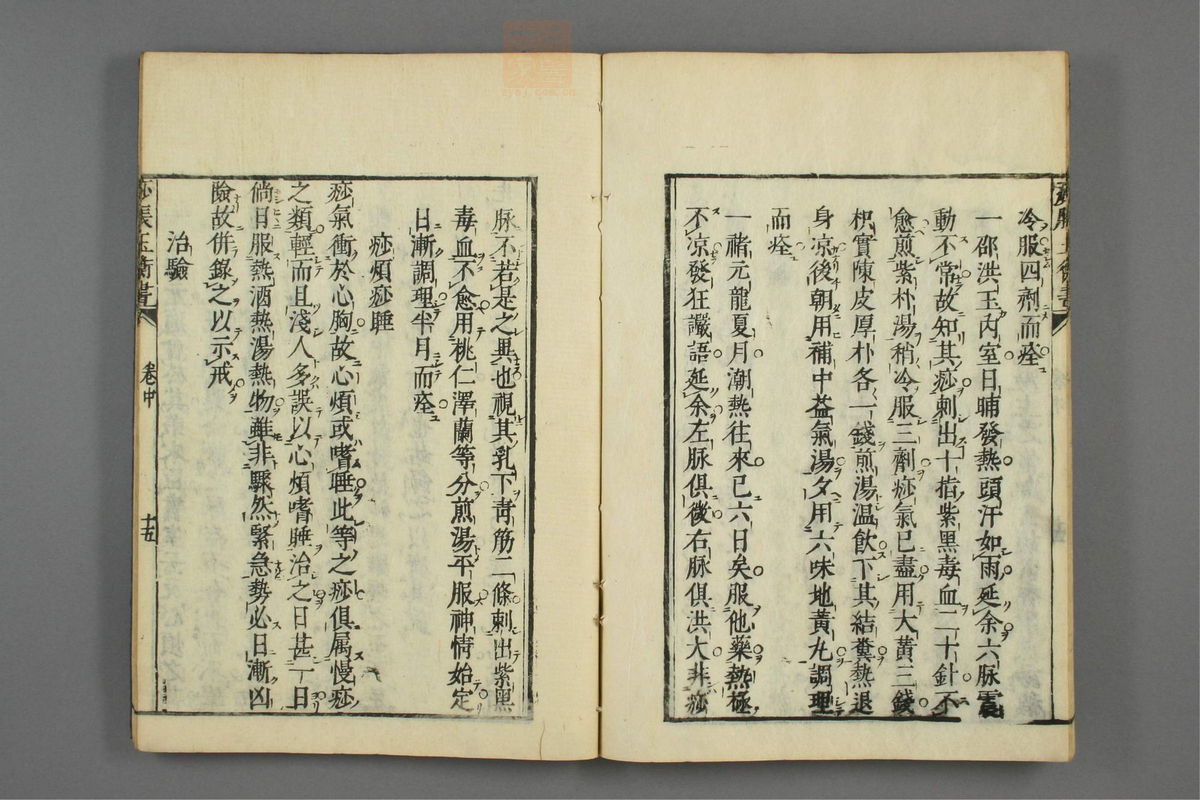 冷服四劑而痊
一邵洪玉內室日晡發熱頭汗如雨延余六脉震
動不常故知其痧刺出十指紫黑毒血二十針不
愈煎紫朴湯稍冷服三劑痧氣已盡用大黃三錢
枳實陳皮厚朴各一錢煎湯温飲下其結糞熱退
身凉後朝用補中益氣湯夕用六味地黃丸調理
而痊
一禇元龍夏月潮熱往來已六日矣服他藥熱極
不凉發狂讝語延余左脉俱微右脉俱洪大非痧
脉不若是之異也視其乳下青筋二條刺出紫黑
毒血不愈用桃仁澤蘭等分煎湯平服神情始定
日漸調理半月而痊
痧煩痧睡
痧氣衝於心胸故心煩或嗜睡此等之痧俱属慢痧
之類輕而且淺人多誤以心煩嗜睡治之日甚一日
倘日服熱酒熱湯熱物雖非驟然緊急勢必日漸凶
險故併錄之以示戒
治驗
痧脹玉衡書
卷中
十五